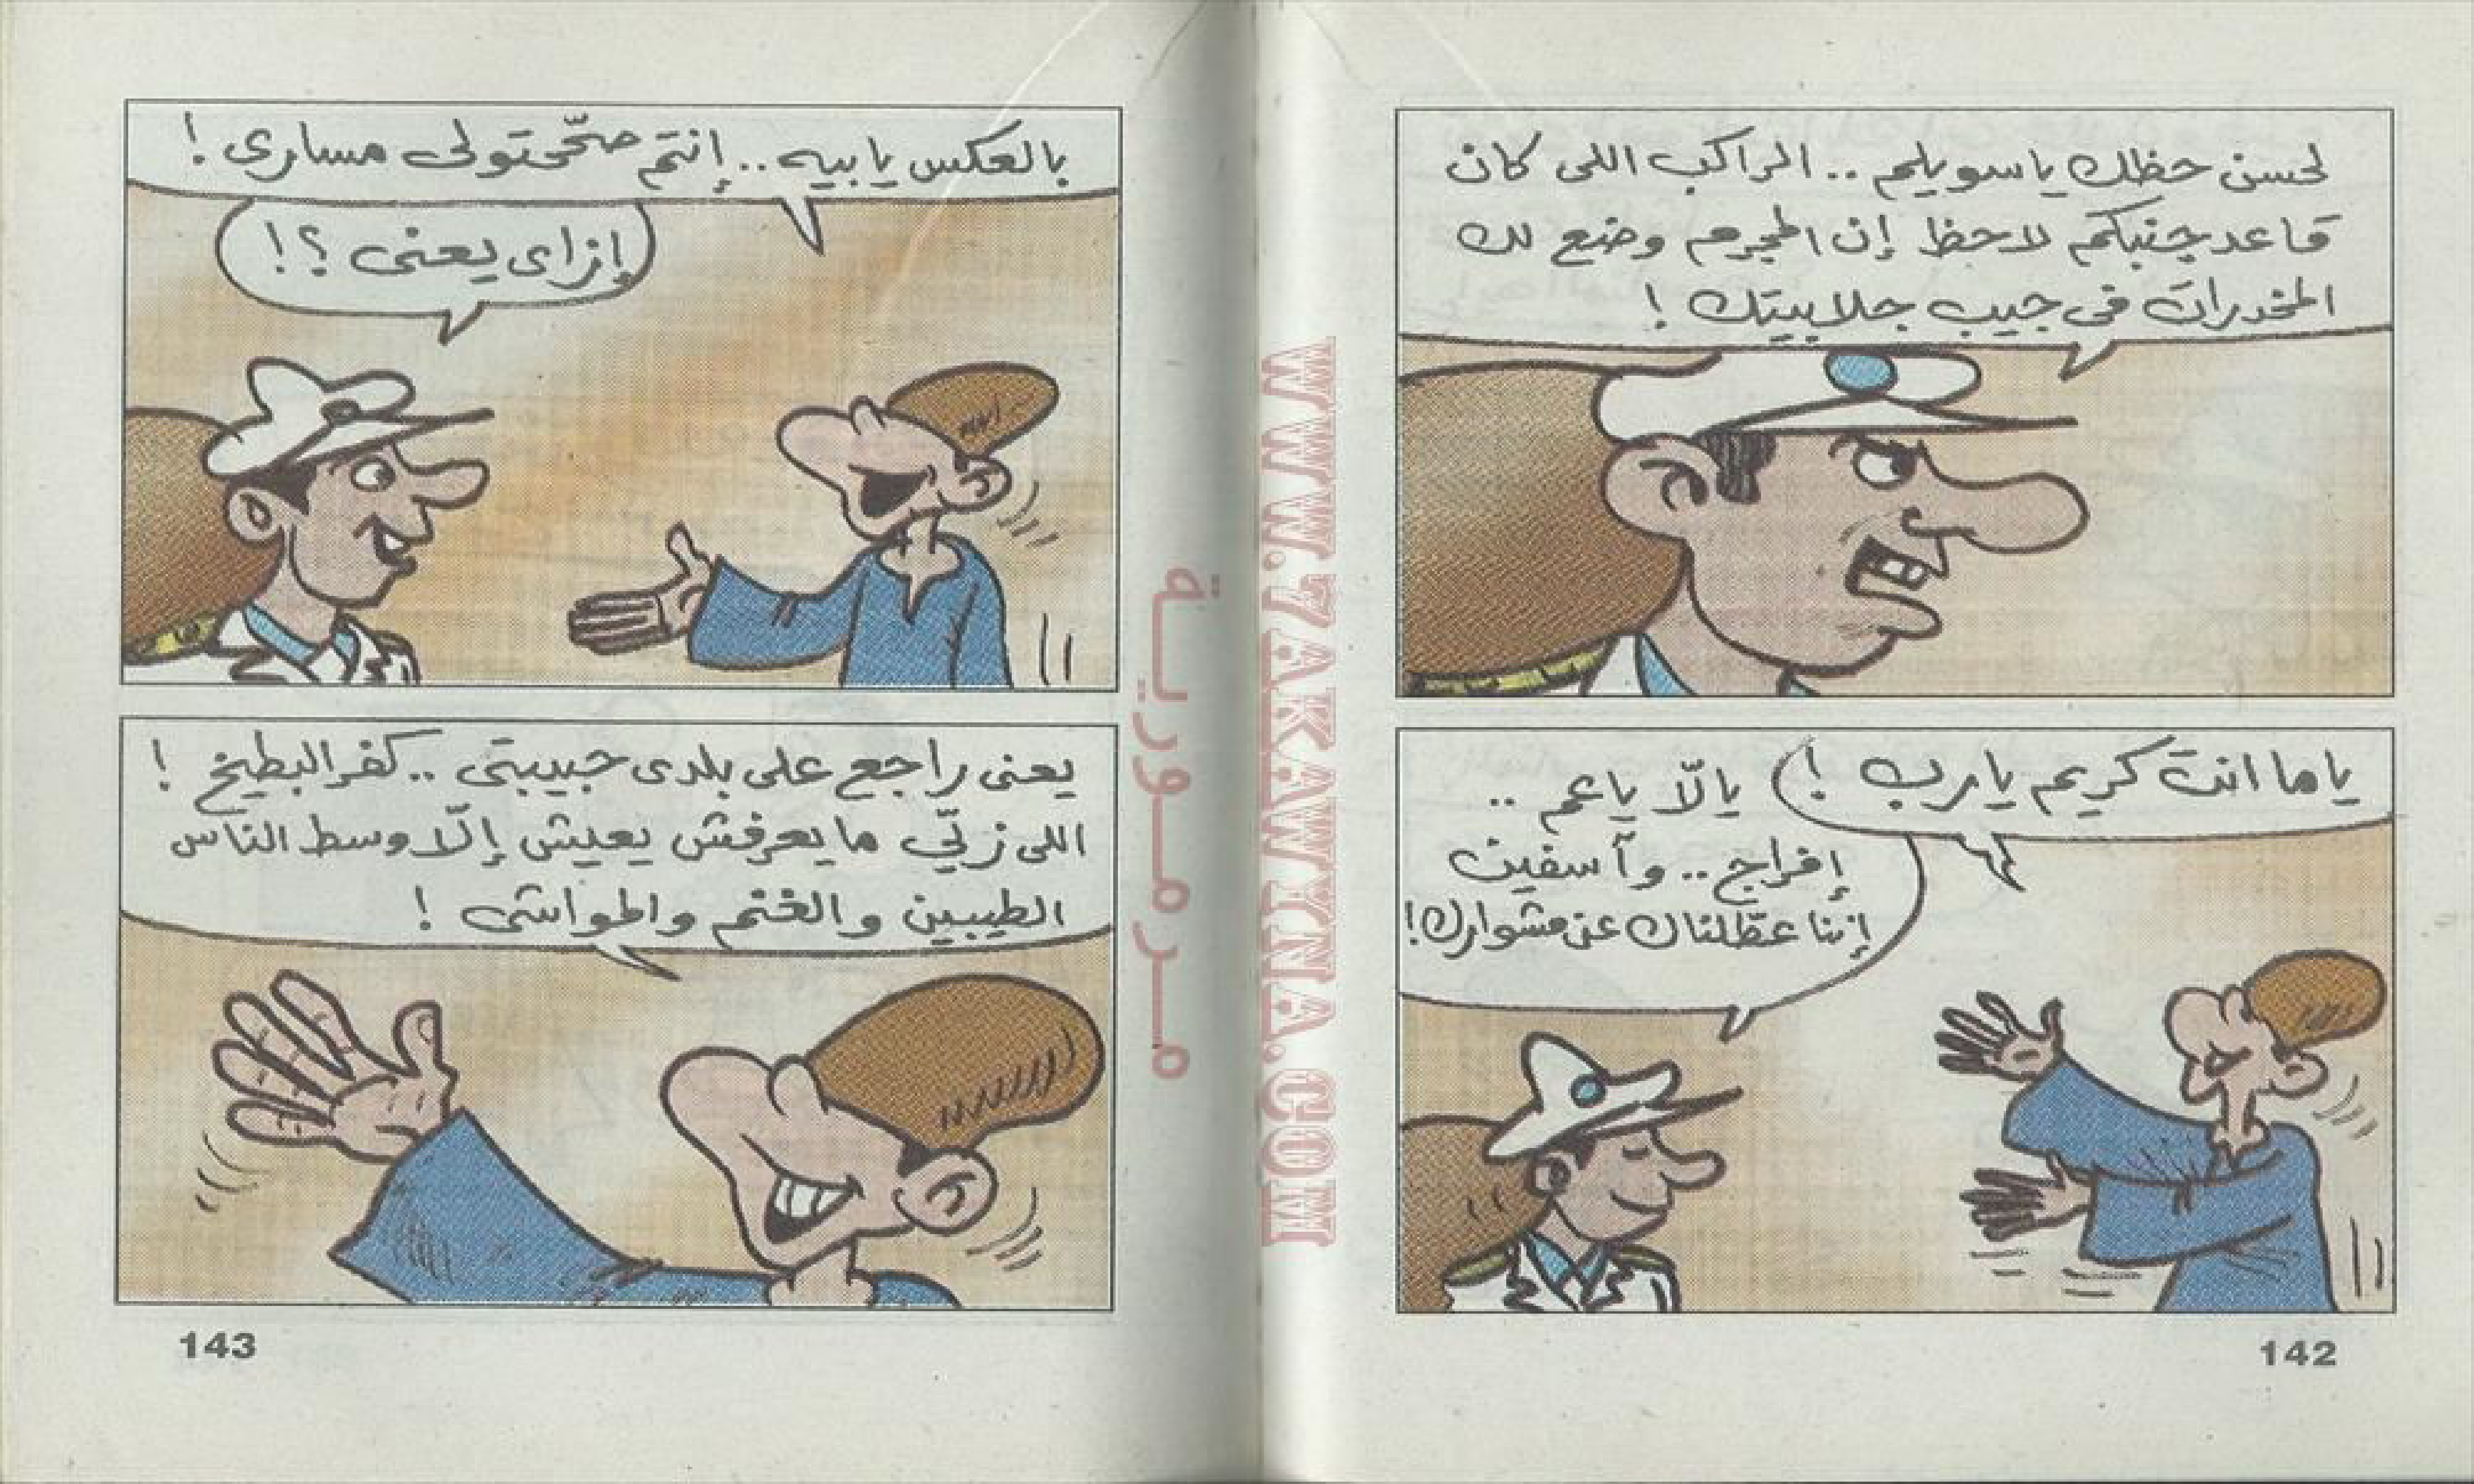 لحسن حظك ياسويلم .. الراكب اللى كان
قاعد جنبكم لاحظ إن المجرم وضع لك
المخدرات فى جيب جلابيتك !
ياما انت كريم يارب !
يالّا ياعم ..
إفراج .. وآسفين
إننا عطّلناك عن مشوارك !
142
بالعكس يابيه .. إنتم صحّحتولى مسارى !
إزاى يعنى ؟!
يعنى راجع على بلدى حبيبتى .. كفر البطيخ !
اللى زيّى مايعرفش يعيش إلّا وسط الناس
الطيبين والغنم والمواشى !
143
مرمورية
WWW.7AKAWINA.COM